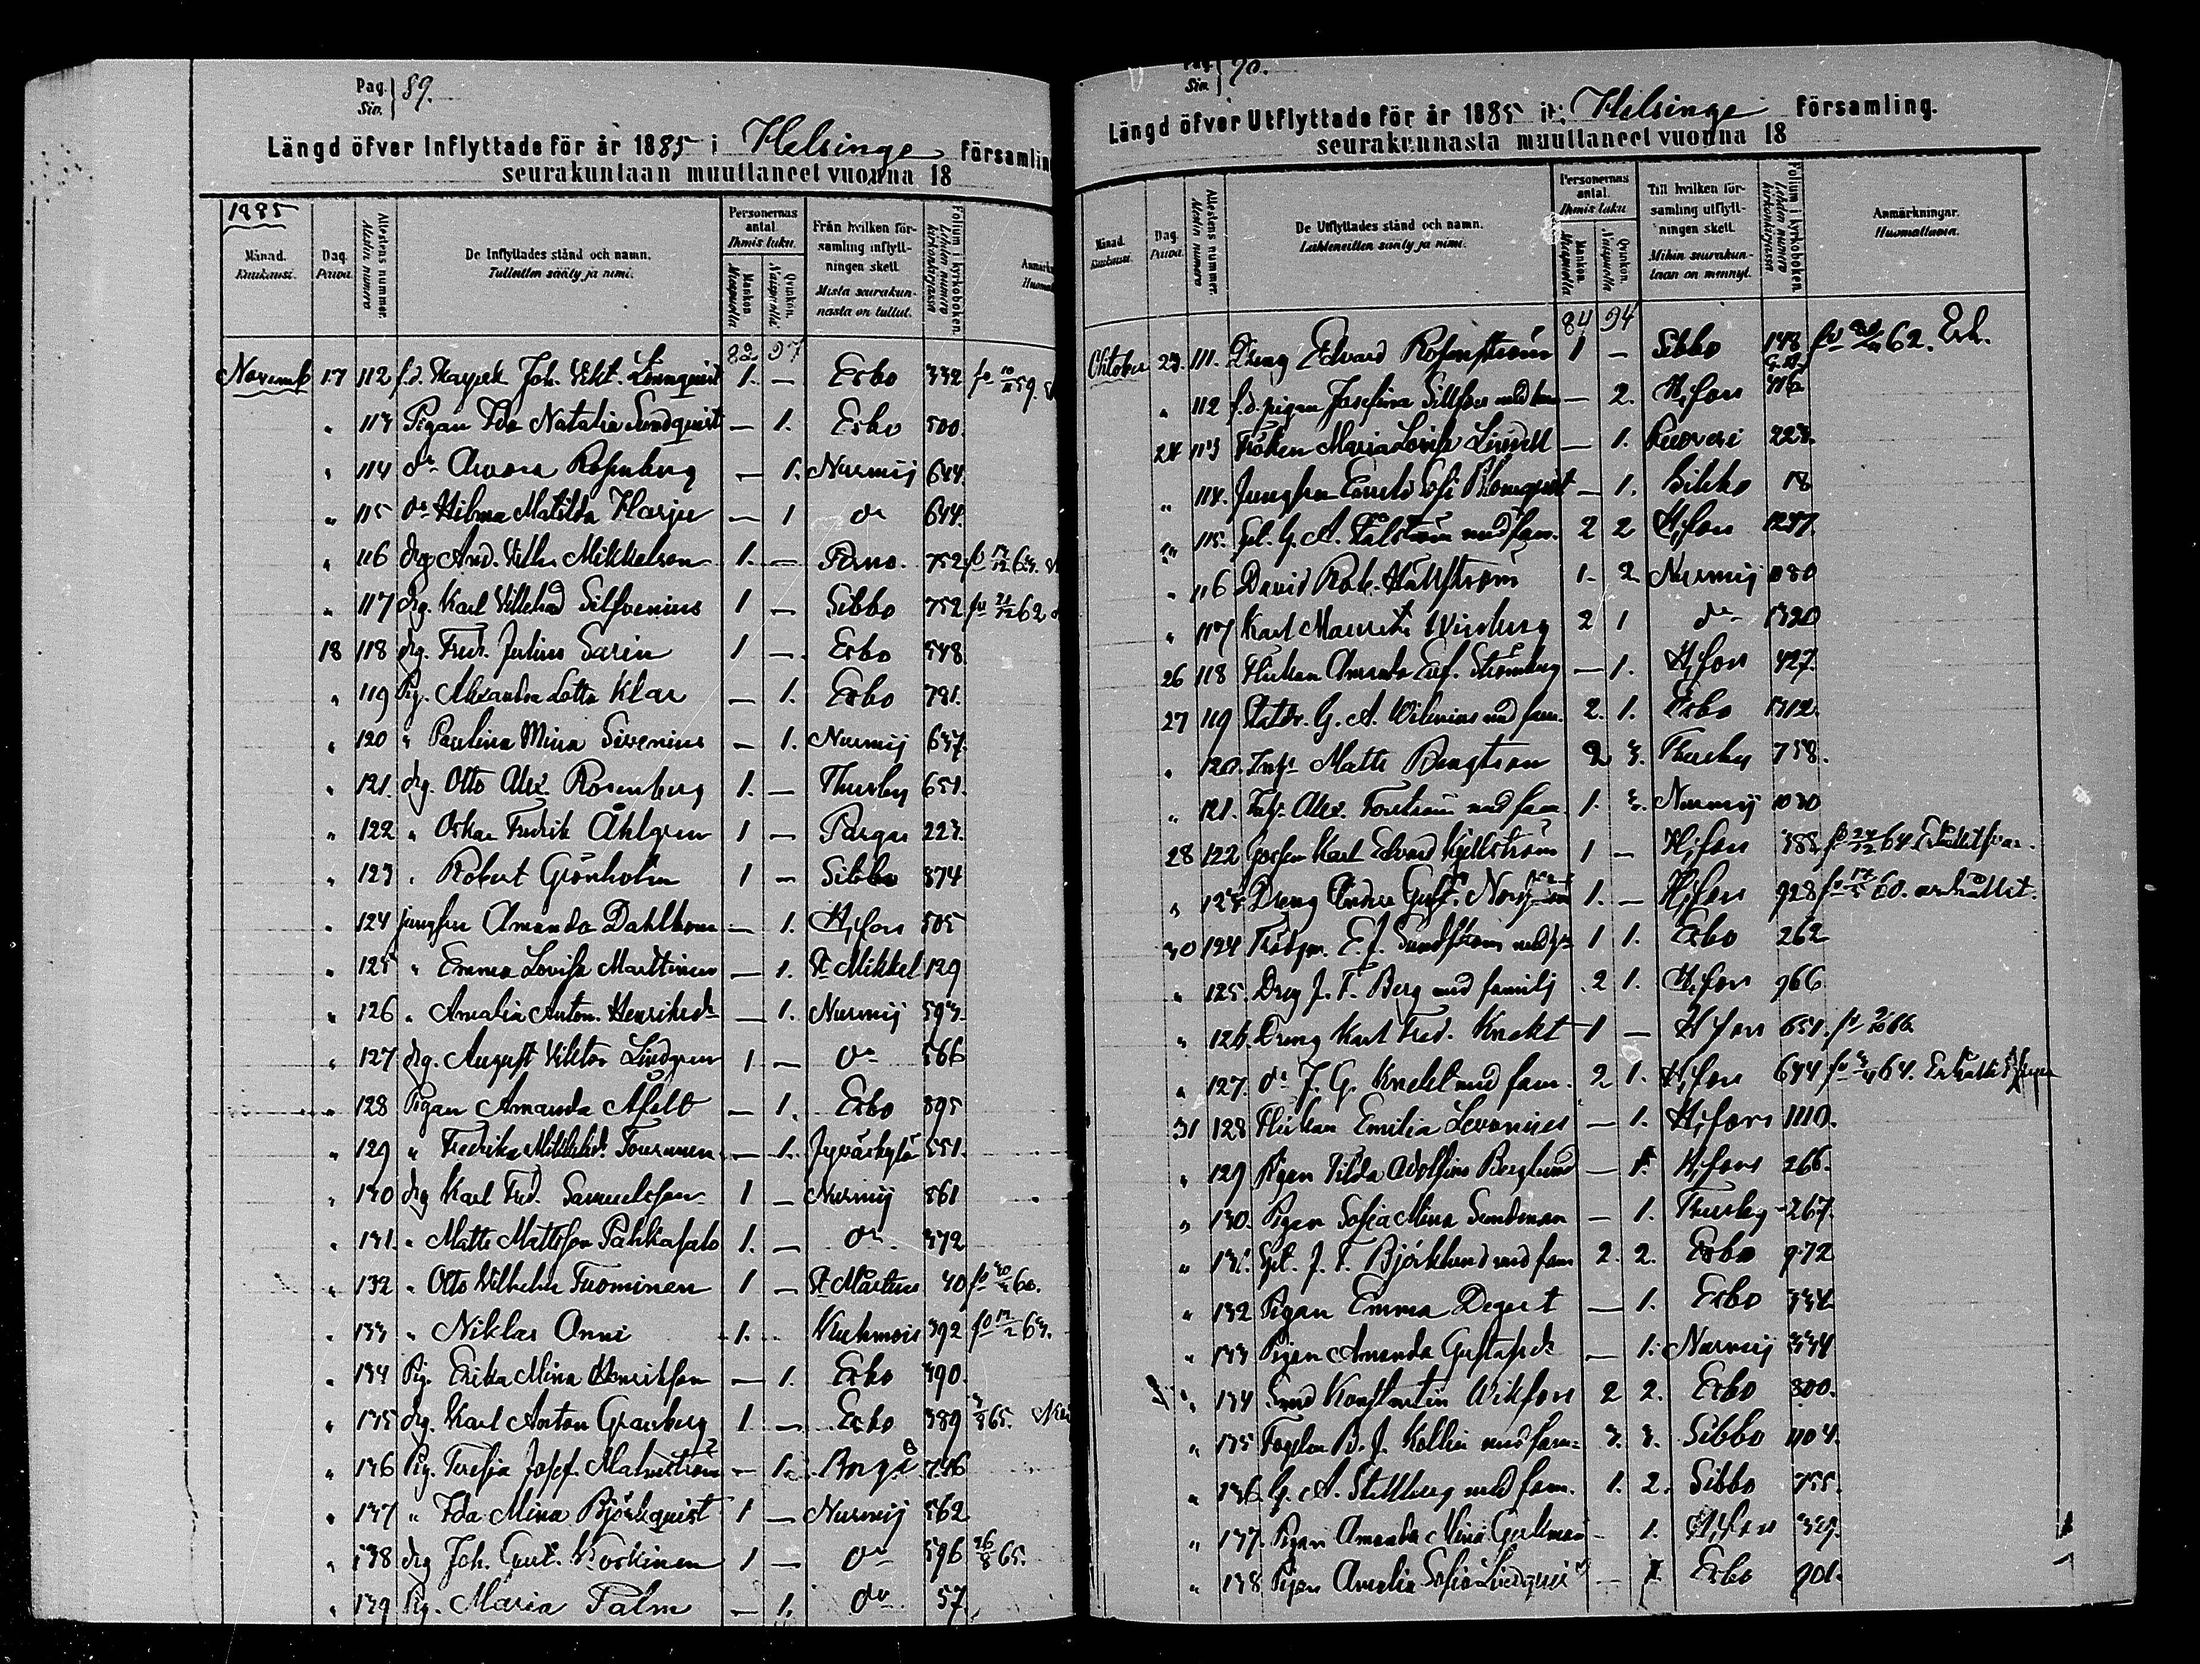 Pag. Siv. } 89.
Längd öfver Inflyttade för år 1885 i Helsinge församling
seurakuntaan muuttaneet vuonna 18
1885
Månad. Kuukausi.
Dag. Päivä.
Attestens nummer. Atestin numero
De Inflyttades stånd och namn. Tulleitten sääty ja nimi.
Personernas antal. Ihmis luku.
Mankön. Miespuolia
Qvinkön. Naispuolia
Från hvilken församling inflyttningen skett. Mistä seurakunnasta on tullut.
Folium i kyrkoboken. Lehden numero kirkonkirjassa
82 97
Novemb 17 112 f.d. Joh. Vikt. Lönnquist 1. — Esbo 332 59.
" 113 Pigan Ida Natalia Sundquist — 1. Esbo 500.
" 114 do Aurora Rosenberg — 1. Nurmij 644.
" 115 do Hilma Matilda Harju — 1 do 644.
" 116 drg And. Vilh. Mikkelson 1. — Perno. 752
" 117 drg. Karl Villehad Silfvenius 1 — Sibbo 752 62
18 118 drg. Fred. Julius Sarin 1 — Esbo 548
" 119 Pig. Alexandra Lotta Klar — 1. Esbo 781.
" 120 " Paulina Mina Sivenius — 1. Nurmij 637.
" 121. drg. Otto Alex. Rosenberg 1. — Thusby 651.
" 122 " Oskar Fredrik Åhlgren 1 — Pargas 223.
" 123 " Robert Grönholm 1 — Sibbo 874
" 124 jungfru Amanda Dahlbom — 1. H,fors 505
" 125 " Emma Lovisa Marttinen — 1. St Mikkel 129
" 126 " Amalia Anton. Henriksdr — 1. Nurmij 593.
" 127 drg. August Viktor Lindgren 1 — do 566
" 128 Pigan Amanda — 1. Esbo 895
" 129 " Fredrika Tourunen — 1. Jyväskylä 551.
" 130 drg Karl Fred. Samuelsson 1 — Nurmij 861
" 131. " Matts Mattsson Pakkasalo 1. — do 372
" 132 " Otto Vilhelm Tuominen 1 — St Mårtens 40 60.
" 133 " Niklas Onni 1. Kuhmois 392 63.
" 134 Pig. Erika Mina Henriksson — 1. Esbo 390.
" 135 drg. Karl Anton Granberg 1 — Esbo 389 65.
" 136 Pig. Teresia Josef. Malmström — 1. Borgå 746
" 137 " Ida Mina Björkquist 1 — Nurmij 562
" 138 drg Joh. Gust. Koskinen 1 — do 596 26/8 65.
" 139 Pig. Maria Palm — 1. do 57
Pag. Siv. } 90.
Längd öfver Utflyttade för år 1885 i Helsinge församling.
seurakunnasta muuttaneet vuonna 18
Månad. Kuukausi.
Dag. Päivä.
Attestens nummer. Atestin numero
De Utflyttades stånd och namn. Lähteneitten sääty ja nimi.
Personernas antal. Ihmis luku
Mankön. Miespuolia
Qvinkön. Naispuolia
Till hvilken församling utflyttningen skett. Mihin seurakuntaan on mennyt.
Folium i kyrkoboken. Lehden numero kirkonkirjassa
Anmärkningar. Huomattavia.
84 94
Oktober 23. 111. Dreng Edvard Rosenström 1 — Sibbo 178 62. Erh.
" 112 f.d. pigan Josefina Sillfors med barn — 2. H,fors 316
24 113 Fröken Maria Lovisa Lindell — 1. 223.
" 114. Jungfrun Sofi Blomquist — 1. Sibbo 18
" 115. G. A. med fam. 2 2 H,fors 1237.
" 116 David Rob. Hällström 1. 2 Nurmij 1080
" 117 Karl Maurits Winberg 2 1 do 1320
26 118 Flickan Amanda Euf. Strömberg — 1. H,fors 427.
27 119 Statdr. G. A. Wilenius med fam. 2. 1. Esbo 1312.
" 120. Inhs Matts Bengtson 2 3. Thusby 758.
" 121. Inhs. Alex. Forström med fam 1. 3. Nurmij 1030
28 122 Gossen Karl Edvard Kjellström 1 — H,fors 388 64.
" 123. Dreng Gust. 1. — H,fors 928 60. erhållit.
30 124 E. J. Sundström 1 1. Esbo 262
" 125. Dreng J. F. Berg med familj 2 1. H,fors 966
" 126. Dreng Karl Fred. Knekt 1 — H,fors 651. 66
" 127. do J. G. Knekt med fam. 2 1. H,fors 644 64.
31 128 Flickan Emilia Levonius — 1. H,fors 1110.
" 129 Pigan Tilda Adolfina Berglund — 1. H,fors 266.
" 130. Pigan Sofia Mina Sundman — 1. Thusby 267.
" 131. J. F. Björklund med fam 2. 2. Esbo 972
" 132 Pigan Emma Degert — 1. Esbo 334
" 133 Pigan Amanda Gustafsdr — 1. Nurmij 334
" 134 Smed Konstantin Wikfors 2 2. Esbo 800.
" 135 B. J. Kollin med fam. 3. 3. Sibbo 1104.
" 136. G. A. Stellberg med fam. 1. 2. Sibbo 755.
" 137. Pigan Amanda Mina — 1. H,fors 329.
" 138 Pigan Amalia Sofia Lindquist — 1 Esbo 901.